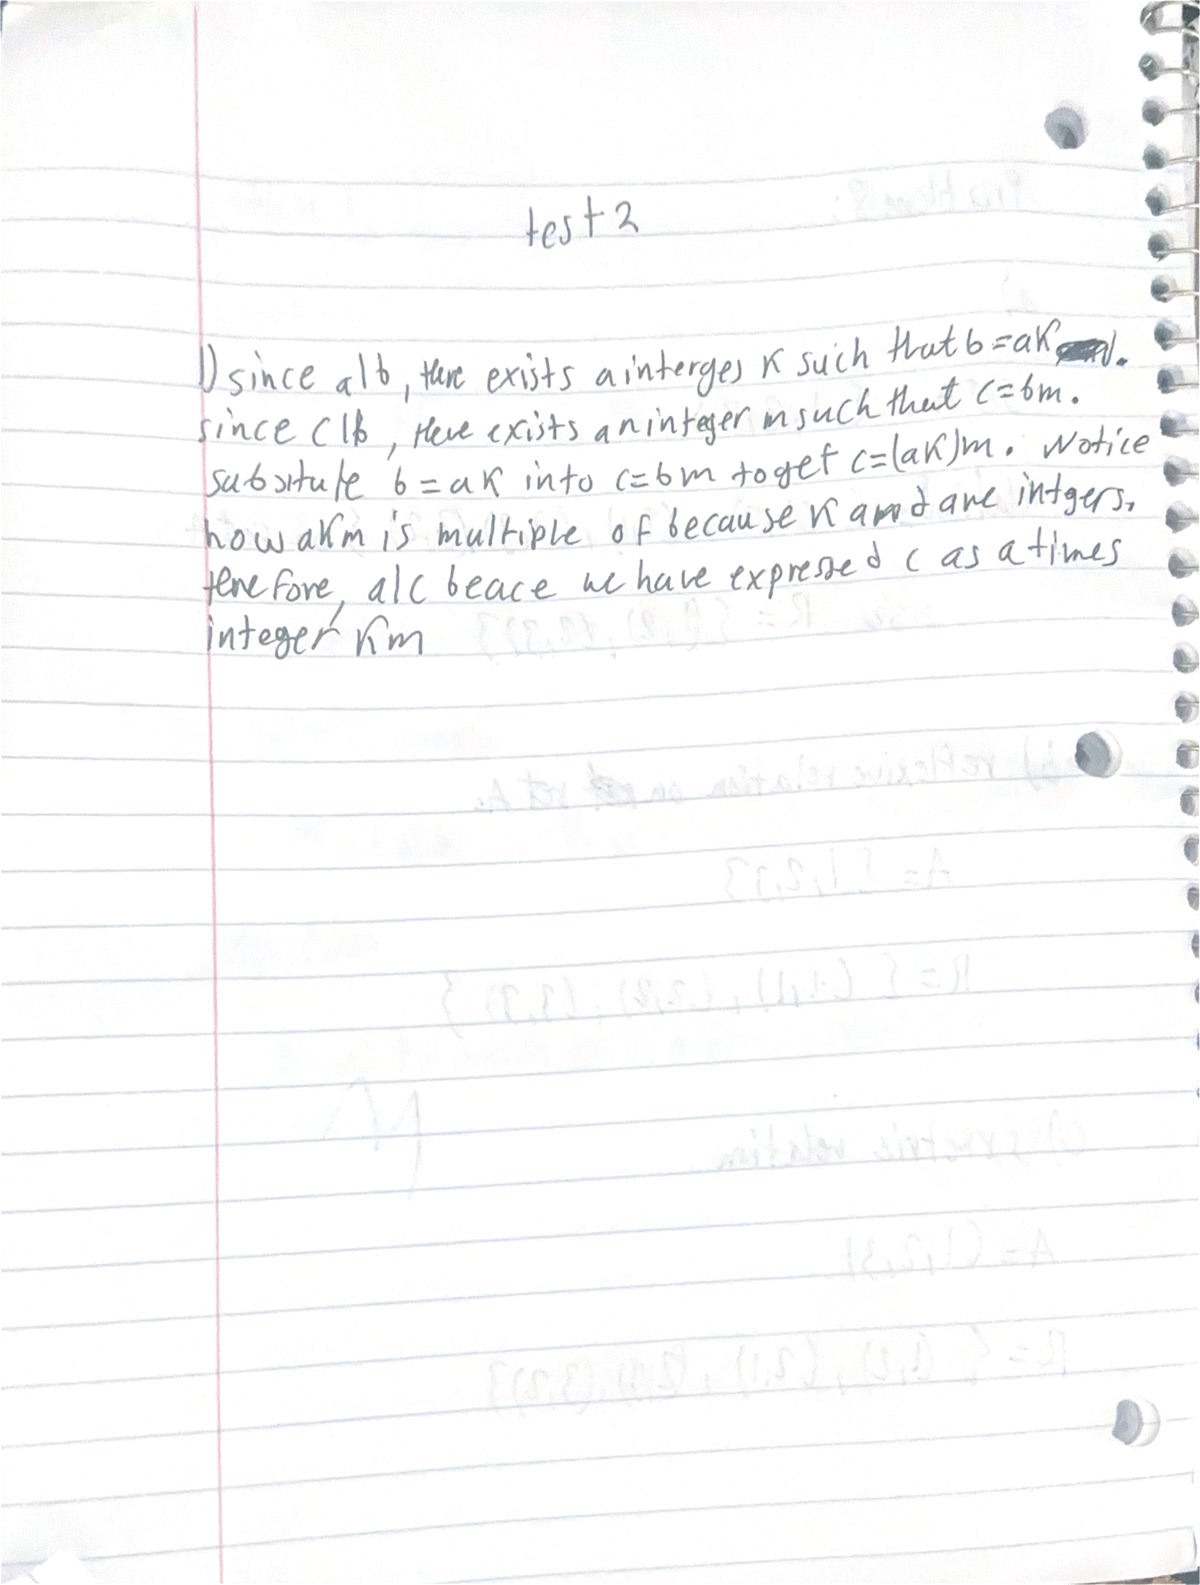 test 2
1) since a|b, there exists a interges K such that b=aK .
since c|b, there exists an integer m such that c=bm.
subsitute b=aK into c=bm to get c=(aK)m. Notice
how aKm is multiple of because K and are intgers.
terefore, a|c beace we have expressed c as a times
integer Km